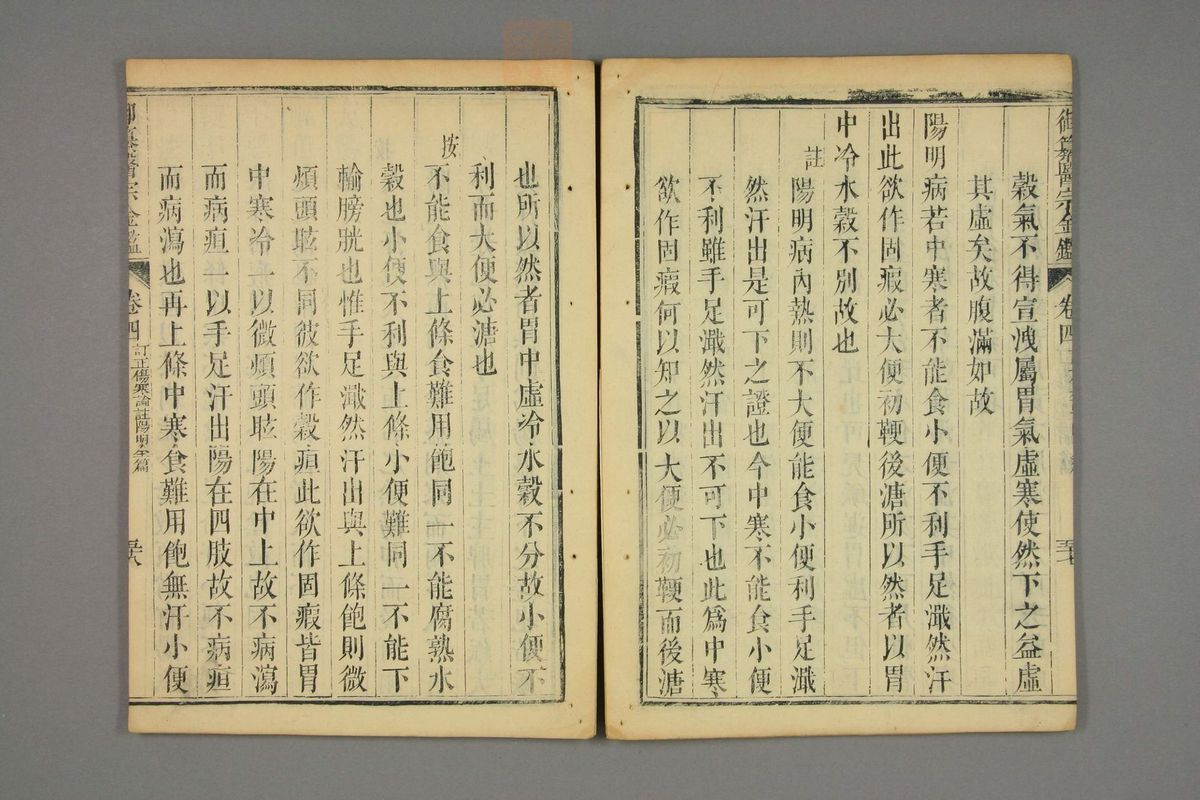 御纂醫宗金鑑 卷四
穀氣不得宣洩屬胃氣虛寒使然下之益虛
其虛矣故腹滿如故
陽明病若中寒者不能食小便不利手足濈然汗
出此欲作固瘕必大便初鞕後溏所以然者以胃
中冷水穀不別故也
註陽明病內熱則不大便能食小便利手足濈
然汗出是可下之證也今中寒不能食小便
不利雖手足濈然汗出不可下也此為中寒
欲作固瘕何以知之以大便必初鞕而後溏
也所以然者胃中虛冷水穀不分故小便不
利而大便必溏也
按不能食與上條食難用飽同一不能腐熟水
穀也小便不利與上條小便難同一不能下
輸膀胱也惟手足濈然汗出與上條飽則微
煩頭眩不同彼欲作穀疸此欲作固瘕皆胃
中寒冷一以微煩頭眩陽在中上故不病瀉
而病疸一以手足汗出陽在四肢故不病疸
而病瀉也再上條中寒食難用飽無汗小便
御纂醫宗金鑑 卷四 訂正傷寒論註陽明全篇